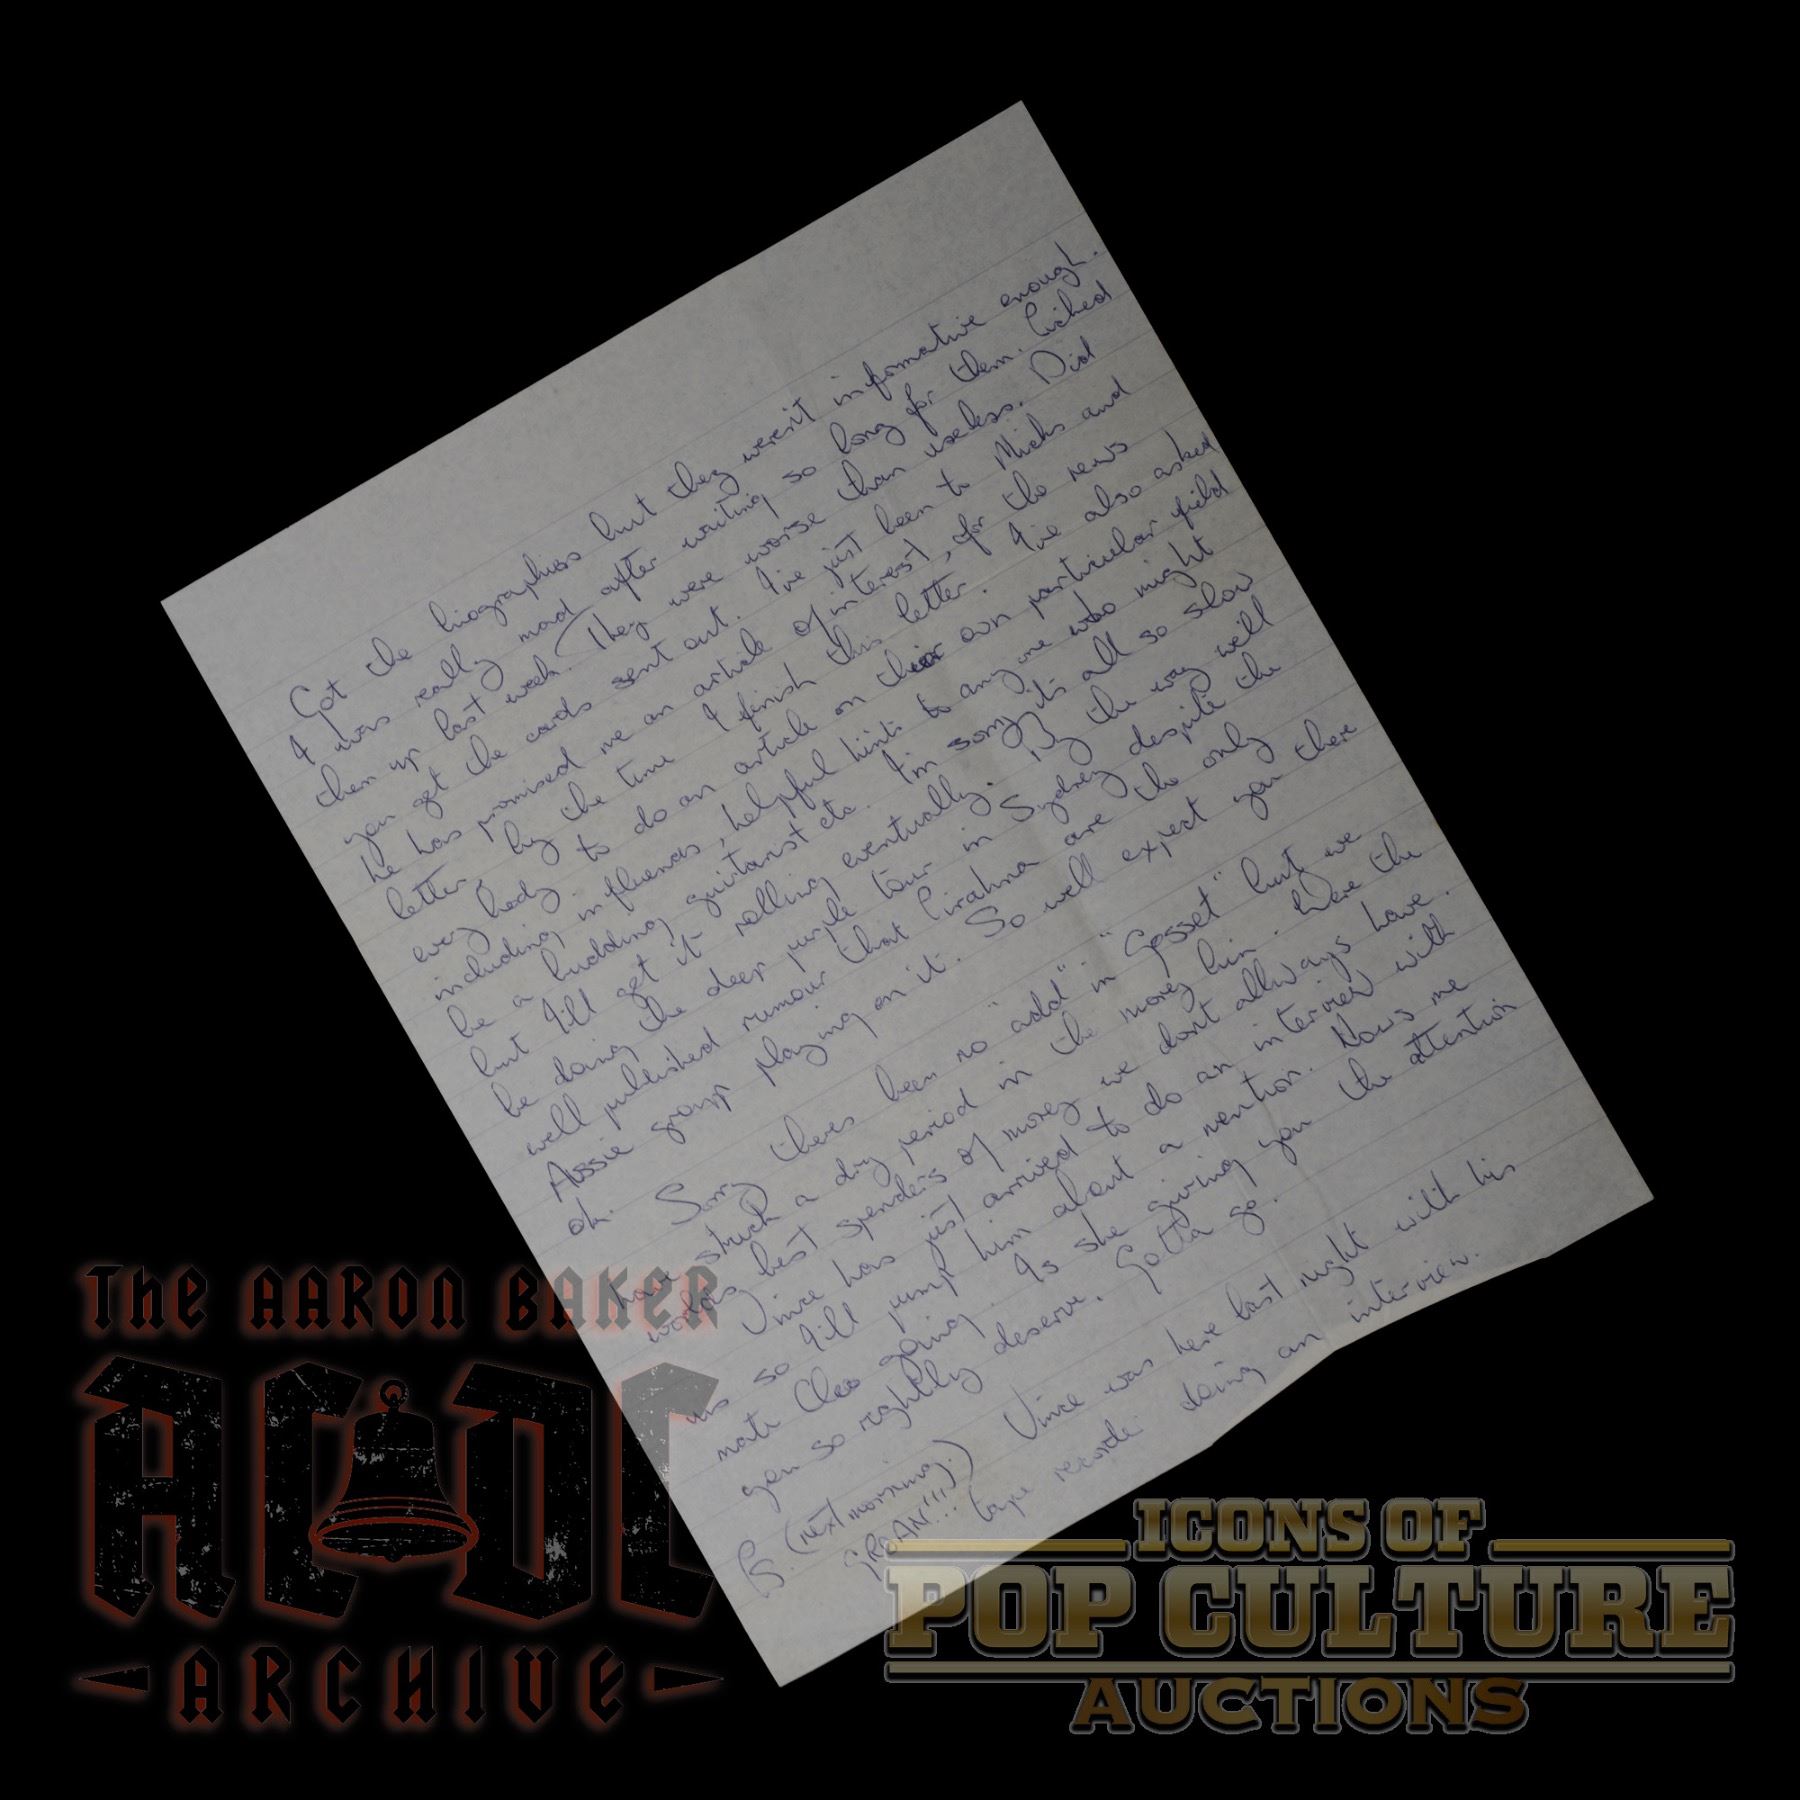 Got the biographies but they weren't informative enough.
I was really mad after writing so long for them. Picked
them up last week. They were worse than useless. Did
you get the cards sent out. I've just been to Micks and
he has promised me an article of interest, for the news
letter, by the time I finish this letter. I've also asked
every body to do an article on their own particular field
including influences, helpful hints to any one who might
be a budding guitarist etc. I'm sorry it's all so slow
but I'll get it rolling eventually. By the way we'll
be doing the deep purple tour in Sydney despite the
well published rumour that Pirahna are the only
Aussie group playing on it. So we'll expect you there
ok.
Sorry theres been no "add" in "Gosset" but we
have struck a dry period in the money bin. Were the
worlds best spenders of money we dont allways have.
Vince has just arrived to do an interview with
us so I'll jump him about a mention. Hows me
mate Cleo going. Is she giving you the attention
you so rightly deserve. Gotta go.
P.S. (next morning.) Vince was here last night with his
GROAN!!! tape recorder doing an interview.
THE AARON BAKER
AC DC
ARCHIVE
ICONS OF
POP CULTURE
AUCTIONS